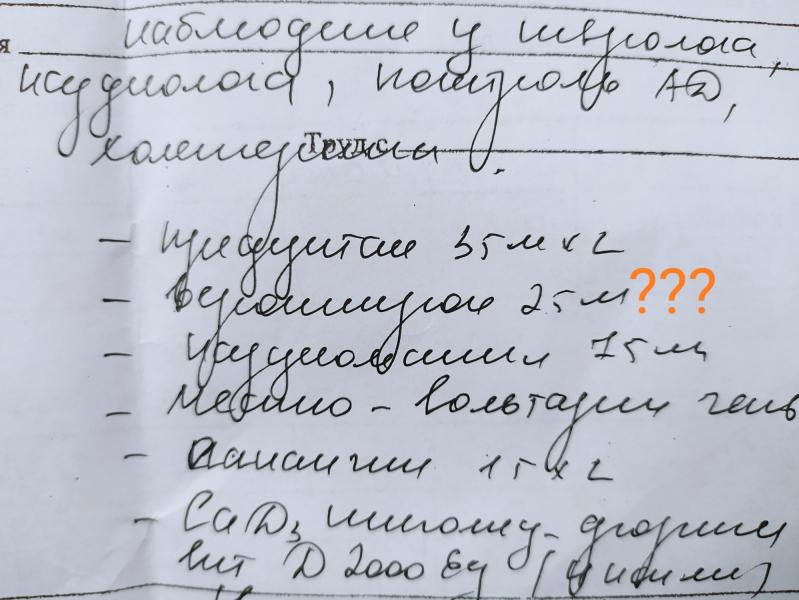 я наблюдение у невролога,
кардиолога, контроль АД,
холестерина.
Трудс
– Предуктал 35 м x 2
25 м ???
– Кардиомагнил 75 мг
– Местно – Вольтарен гель
– Панангин 1т x 2
– Ca D3 никомед-форте
вит D 2000 Ед